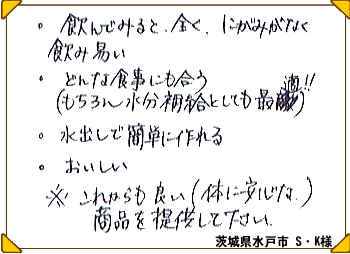 ・飲んでみると、全く、にがみがなく
飲み易い
・どんな食事にも合う
(もちろん水分補給としても最適!!)
・水出しで簡単に作れる
・おいしい
※これからも良い(体に安心な)
商品を提供して下さい
茨城県水戸市 S・K様